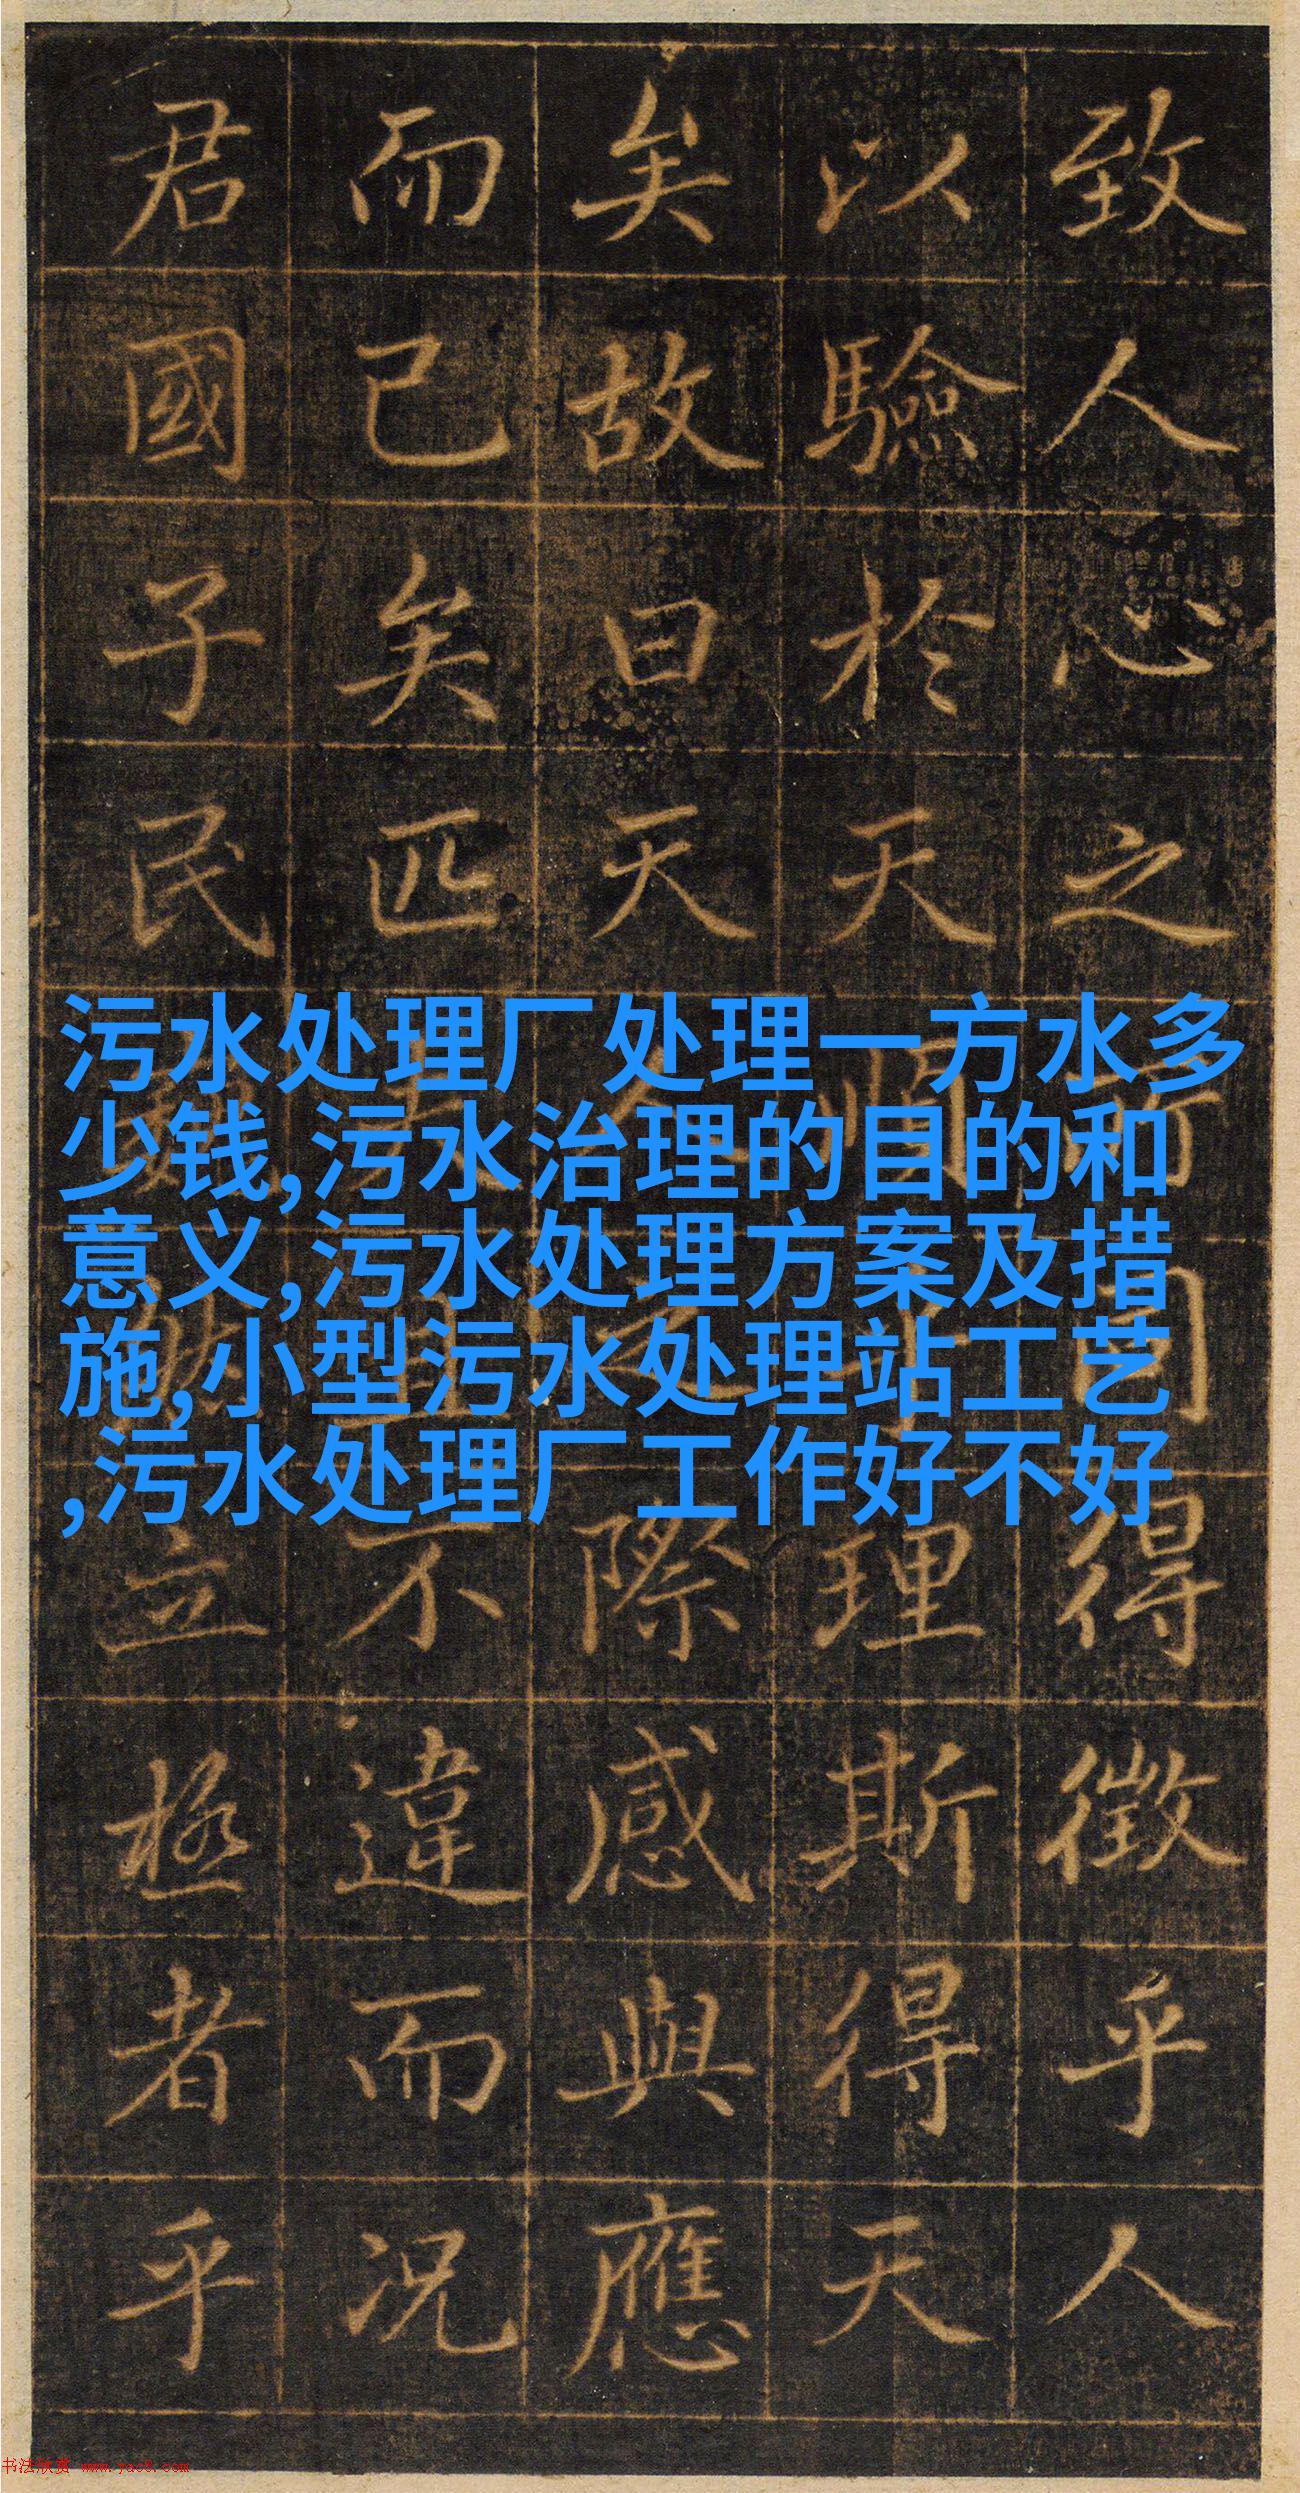 致人心之所同得徵乎人
以驗於天順理斯得天
矣故曰天人之際感與應
而已矣匹夫且不違而況
君國子民立極者乎
污水处理厂处理一方水多
少钱,污水治理的目的和
意义,污水处理方案及措
施,小型污水处理站工艺
,污水处理厂工作好不好
书法欣赏 www.yac8.com